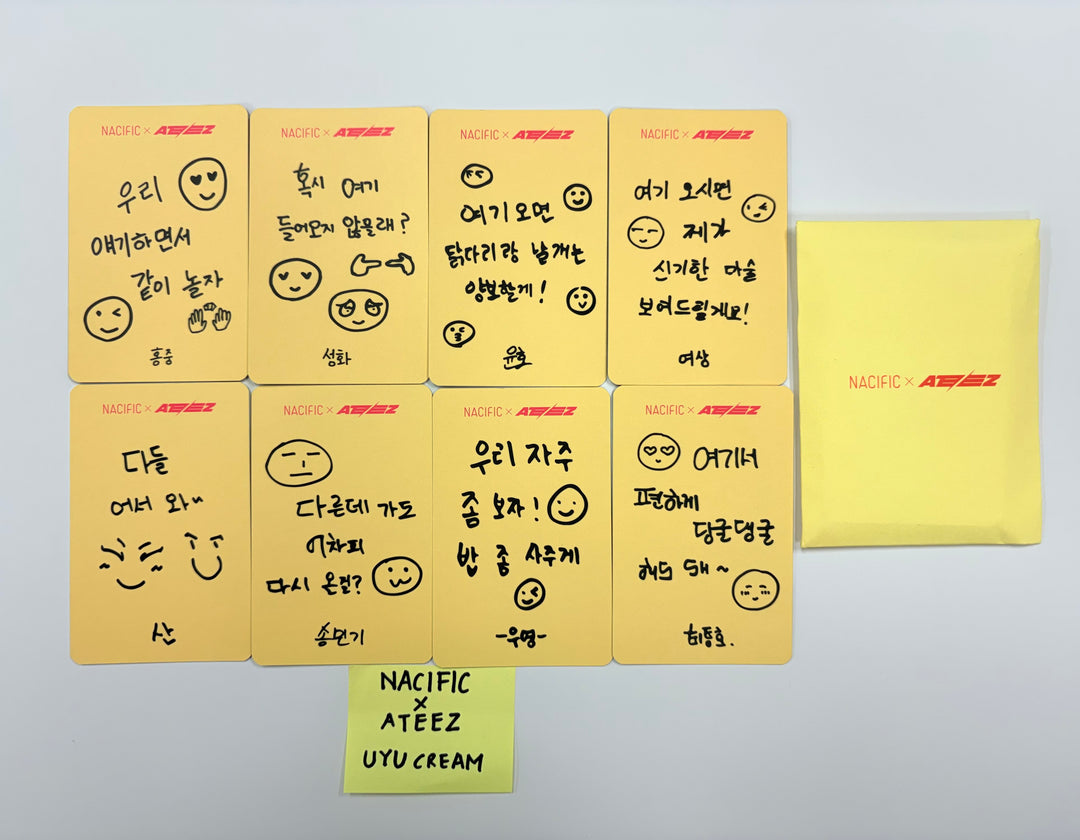 NACIFIC × ATEEZ
우리
얘기하면서
같이 놀자
홍중
NACIFIC × ATEEZ
혹시 여기
들어오지 않을래?
성화
NACIFIC × ATEEZ
여기 오면
닭다리랑 날개는
양보할게!
윤호
NACIFIC × ATEEZ
여기 오시면
제가
신기한 마술
보여드릴게요!
여상
NACIFIC × ATEEZ
다들
어서 와~
산
NACIFIC × ATEEZ
다른데 가도
어차피
다시 올걸?
송민기
NACIFIC × ATEEZ
우리 자주
좀 보자!
밥 좀 사주게
-우영-
NACIFIC × ATEEZ
여기서
편하게
딩굴댕굴
해도 돼~
최종호.
NACIFIC × ATEEZ
NACIFIC
×
ATEEZ
UYU CREAM